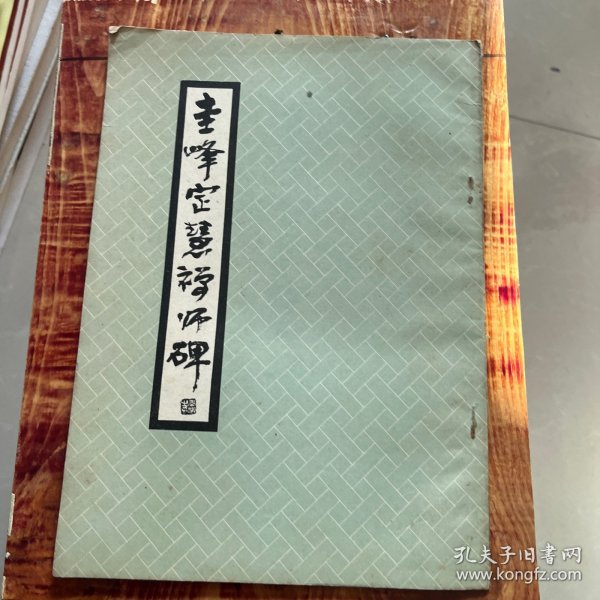 圭峰定慧禅师碑
孔夫子旧書网
www.kongfz.com